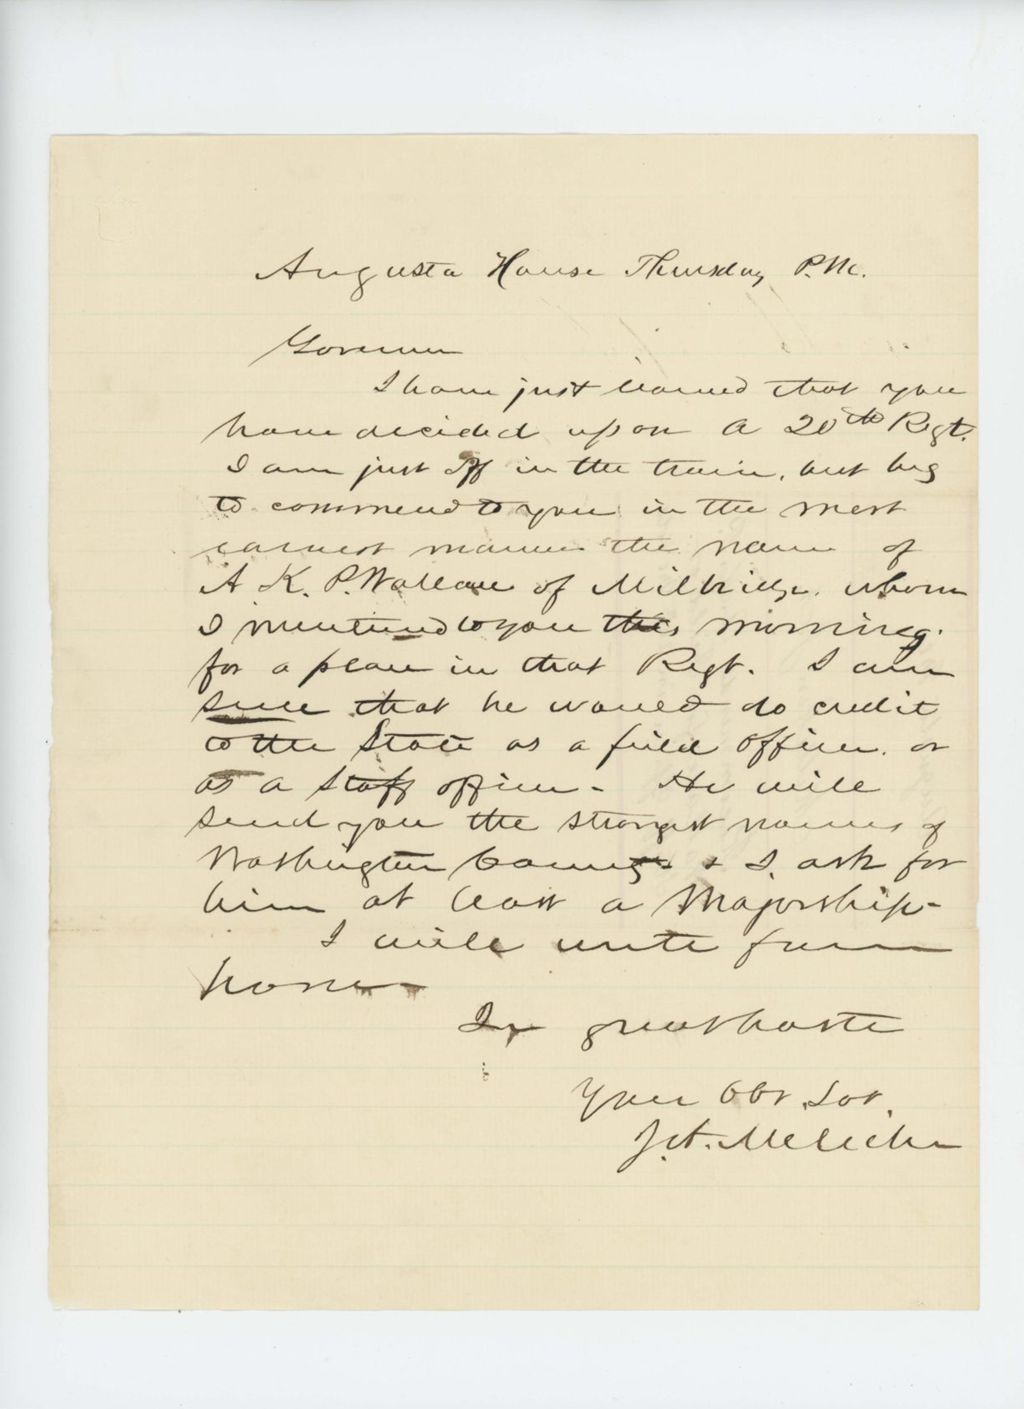 Augusta House Thursday P.M.
Governor
I have just learned that you
have decided upon a 20th Regt.
I am just off in the train, but beg
to commend to you in the most
earnest manner the name of
A. K. P. Wallace of Milbridge, whom
I mentioned to you this morning.
for a place in that Regt. I am
sure that he would do credit
to the State as a field officer. or
as a staff officer - He will
send you the strongest names of
Washington County & I ask for
him at least a Majorship -
I will write from
home -
In great haste
Your Obt Svt.
J. A. Milliken